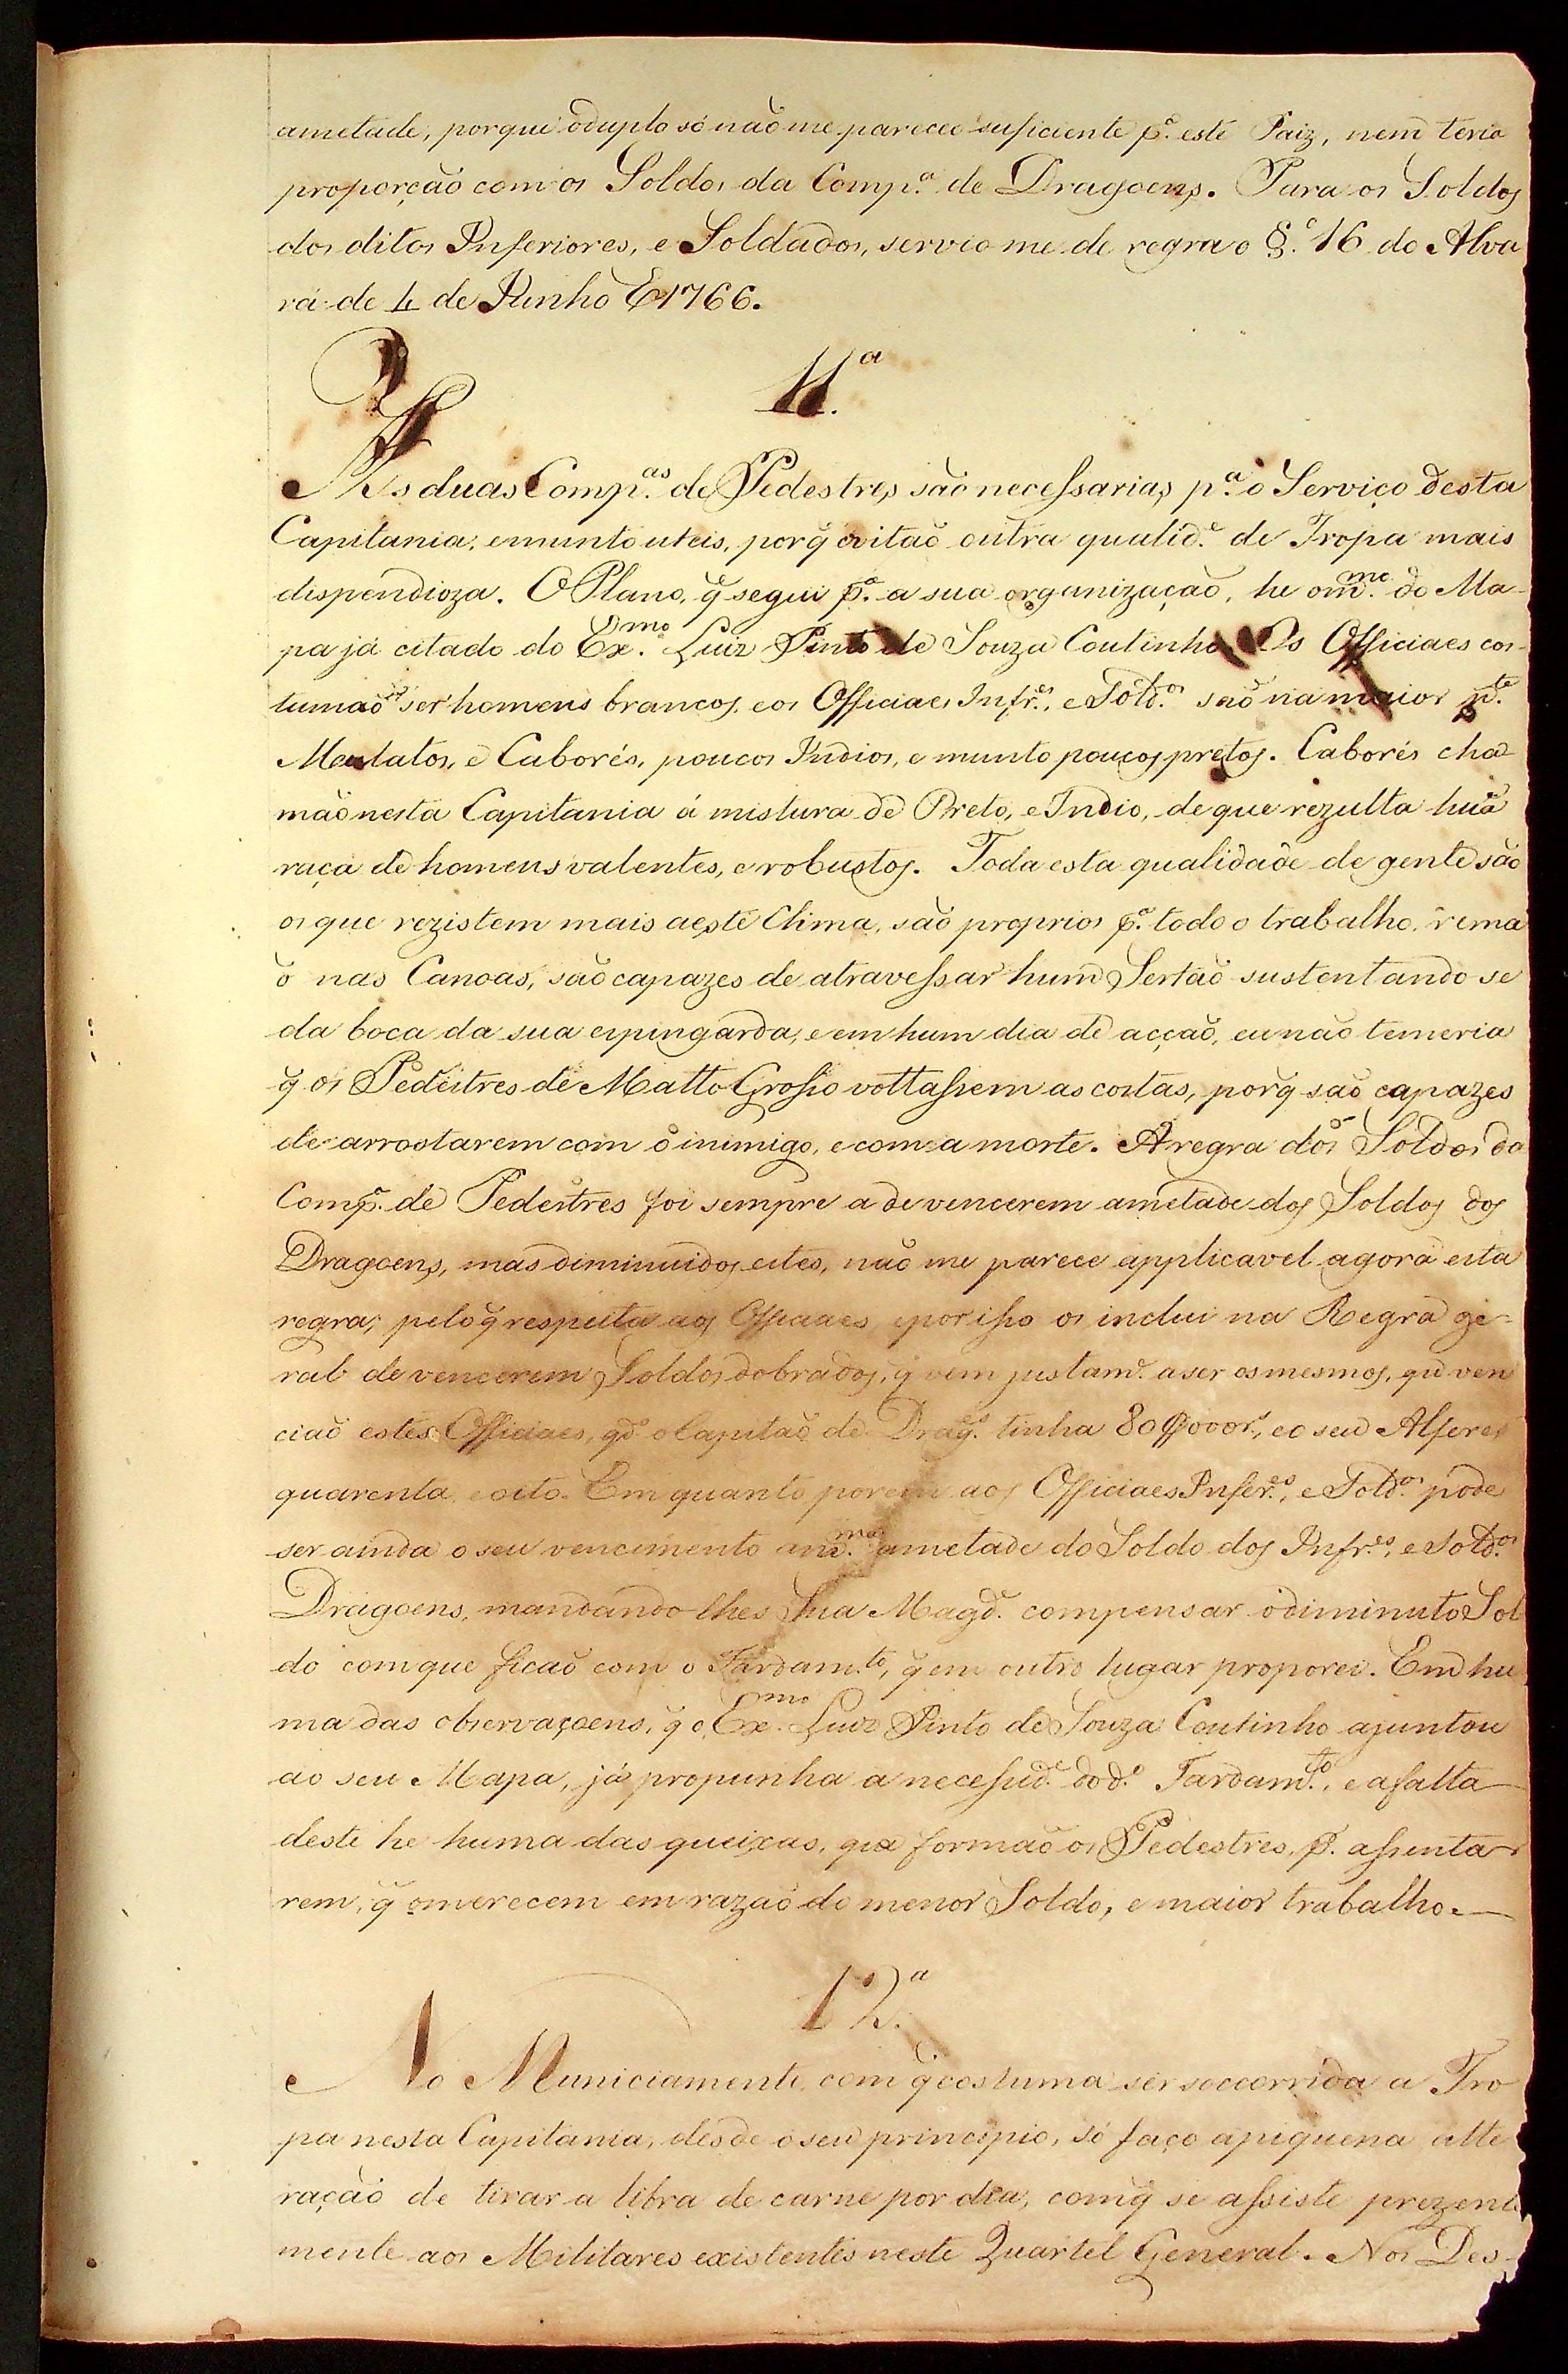 ametade, porque o duplo só não me pareceo suficiente p.ª este Paiz, nem teria
proporção com os Soldos da Comp.ª de Dragoens. Para os Soldos
dos ditos Inferiores, e Soldados, servio me de regra o §.º 16 do Alva
rá de 4 de Junho E 1766.
11.ª
As duas Comp.as de Pedestres são necessarias p.ª o Serviço desta
Capitania, e munto uteis, porq̃ evitaõ outra qualid.e de Tropa mais
dispendioza. O Plano, q̃ segui p.ª a sua organização, he o m.mo do Ma-
pa já citado do Ex.mo Luiz Pinto de Souza Coutinho. Os Officiaes cos-
tumaõ ser homens brancos, e os Officiaes Infr.es, e Sold.os saõ na maior p.te
Mulatos, e Caborés, poucos Indios, e munto poucos pretos. Caborés cha-
mão nesta Capitania á mistura de Preto, e Indio, de que rezulta huã
raça de homens valentes, e robustos. Toda esta qualidade de gente são
os que rezistem mais a este Clima, são proprios p.ª todo o trabalho, rema
õ nas Canoas, são capazes de atravessar hum Sertão sustentando se
da boca da sua espingarda, e em hum dia de acção, eu não temeria
q̃ os Pedestres de Matto Grosso voltassem as costas, porq̃ saõ capazes
de arrostarem com o inimigo, e com a morte. A regra dos Soldos da
Comp.ª de Pedestres foi sempre a de vencerem ametade dos Soldos dos
Dragoens, mas diminuidos estes, naõ me parece applicavel agora esta
regra, pelo q̃ respeita aos Officiaes, e por isso os inclui na Regra ge-
ral de vencerem Soldos dobrados, q̃ vem justam.e a ser os mesmos, que ven
ciaõ estes Officiaes, qd.o o Capitaõ de Drag.s tinha 80$000r.s, e o seu Alferes
quarenta e oito. Em quanto porem aos Officiaes Infer.es, e Sold.os pode
ser ainda o seu vencimento a m.ma ametade do Soldo dos Infr.es, e Sold.os
Dragoens, mandando lhes Sua Magd.e compensar o diminuto Sol
do com que ficaõ com o Fardam.to, q̃ em outro lugar proporei. Em hu
ma das observaçoens, q̃ o Ex.mo Luiz Pinto de Souza Coutinho ajuntou
ao seu Mapa, já propunha a necessid.e do d.o Fardam.to, e a falta
deste he huma das queixas, que formaõ os Pedestres, p.ª assenta-
rem, q̃ o merecem em razaõ do menor Soldo, e maior trabalho.
12.ª
No Municiamento, com q̃ costuma ser soccorrida a Tro
pa nesta Capitania, desde o seu principio, só faço a piquena alte
ração de tirar a libra de carne por dia, com q̃ se assiste prezente
mente aos Militares existentes neste Quartel General. Nos Des-